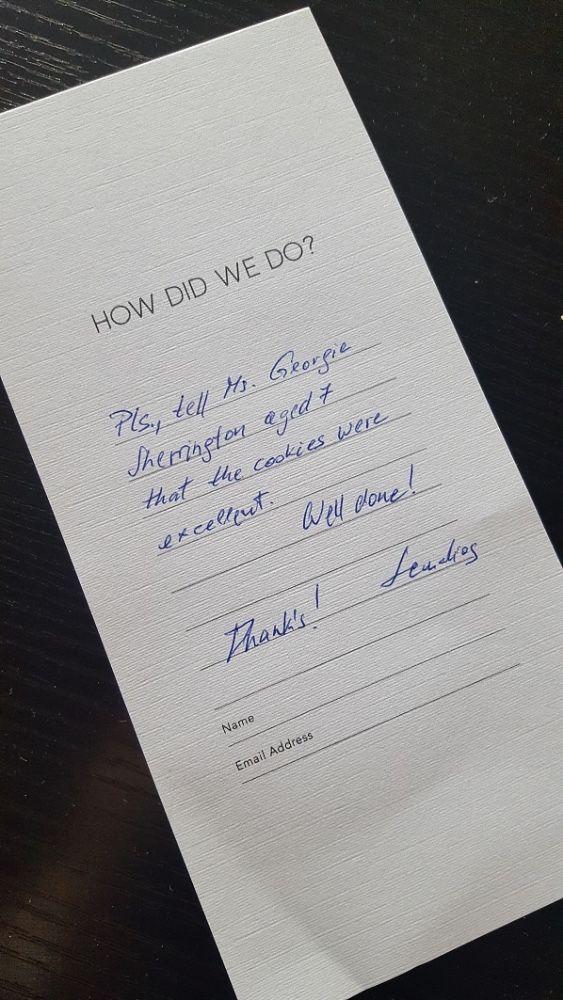 HOW DID WE DO?
Pls., tell Mr. Georgie
Sherrington aged 7
that the cookies were
excellent.
Well done!
Thanks!
Name
Email Address